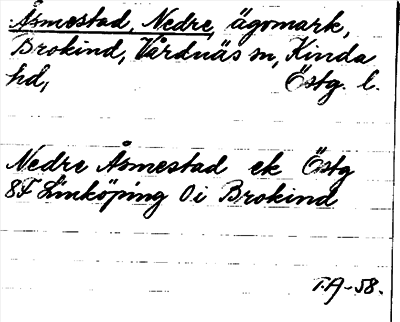 Åsmestad, Nedre, ägomark,
Brokind, Vårdnäs sn, Kinda
hd, Östg. l.
Nedre Åsmestad ek Östg
8F Linköping 0i Brokind
T.A-58.